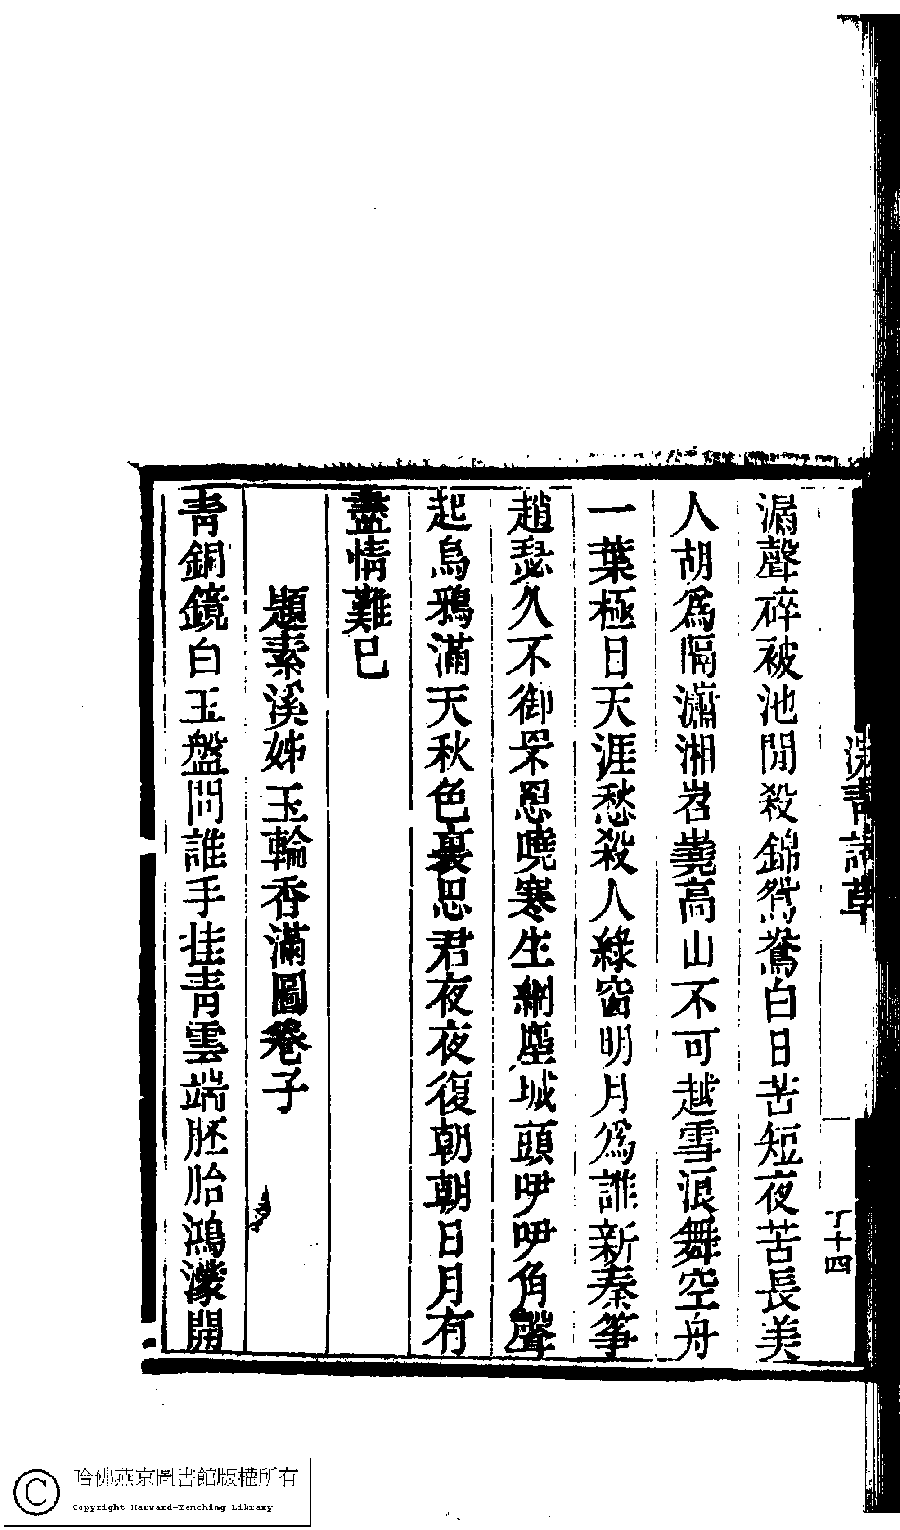 漏聲碎被池閒殺錦鴛鴦白日苦短夜苦長美
人胡爲隔瀟湘岧嶤高山不可越雪浪舞空舟
一葉極目天涯愁殺人綠窗明月爲誰新秦箏
趙瑟久不御罘罳曉寒生網塵城頭吚吚角聲
起烏鴉滿天秋色裏思君夜夜復朝朝日月有
盡情難已
題素溪姊玉輪香滿圖卷子
靑銅鏡白玉盤問誰手挂靑雲端胚胎鴻濛開
詩草
十四
哈佛燕京圖書館版權所有
Copyright Harvard-Yenching Library